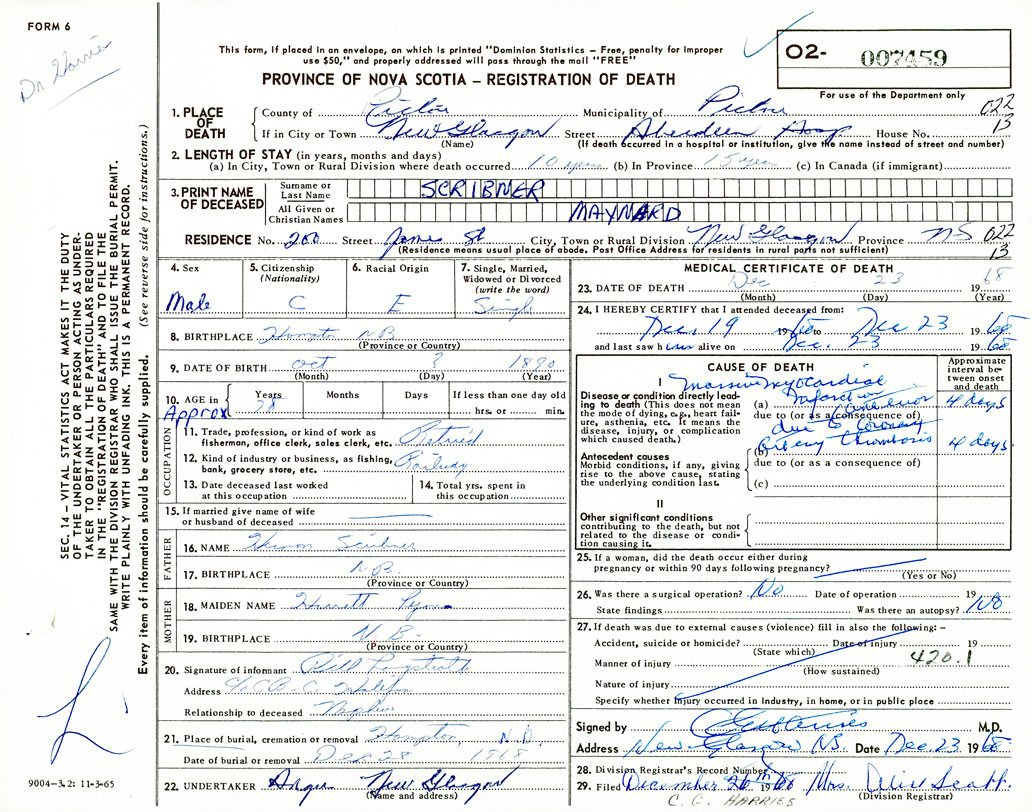 FORM 6
Dr Harries
This form, if placed in an envelope, on which is printed "Dominion Statistics – Free, penalty for improper
use $50," and properly addressed will pass through the mail "FREE"
PROVINCE OF NOVA SCOTIA – REGISTRATION OF DEATH
O2- 007459
For use of the Department only
SEC. 14 – VITAL STATISTICS ACT MAKES IT THE DUTY
OF THE UNDERTAKER OR PERSON ACTING AS UNDER-
TAKER TO OBTAIN ALL THE PARTICULARS REQUIRED
IN THE "REGISTRATION OF DEATH" AND TO FILE THE
SAME WITH THE DIVISION REGISTRAR WHO SHALL ISSUE THE BURIAL PERMIT.
WRITE PLAINLY WITH UNFADING INK. THIS IS A PERMANENT RECORD.
Every item of information should be carefully supplied. (See reverse side for instructions.)
1. PLACE OF DEATH
County of Pictou Municipality of Pictou 022
If in City or Town New Glasgow Street Aberdeen Hosp House No. 13
(Name) (If death occurred in a hospital or institution, give the name instead of street and number)
2. LENGTH OF STAY (in years, months and days)
(a) In City, Town or Rural Division where death occurred 10 years (b) In Province 15 years (c) In Canada (if immigrant)
3. PRINT NAME OF DECEASED
Surname or Last Name SCRIBNER
All Given or Christian Names MAYNARD
RESIDENCE No. 200 Street James St City, Town or Rural Division New Glasgow Province NS 022
(Residence means usual place of abode. Post Office Address for residents in rural parts not sufficient) 13
4. Sex
Male
5. Citizenship (Nationality)
C
6. Racial Origin
E
7. Single, Married, Widowed or Divorced (write the word)
Single
8. BIRTHPLACE Hampton NB
(Province or Country)
9. DATE OF BIRTH Oct 3 1890
(Month) (Day) (Year)
10. AGE in Years Months Days If less than one day old
Approx 78 hrs. or min.
OCCUPATION
11. Trade, profession, or kind of work as
fisherman, office clerk, sales clerk, etc. Retired
12. Kind of industry or business, as fishing,
bank, grocery store, etc. Railway
13. Date deceased last worked
at this occupation
14. Total yrs. spent in
this occupation
15. If married give name of wife
or husband of deceased
FATHER
16. NAME Scribner
17. BIRTHPLACE N.B.
(Province or Country)
MOTHER
18. MAIDEN NAME
19. BIRTHPLACE N B
(Province or Country)
20. Signature of informant Bill
Address c/o C.B.C. Halifax
Relationship to deceased Nephew
21. Place of burial, cremation or removal Hampton, N.B.
Date of burial or removal Dec 28 1968
22. UNDERTAKER New Glasgow
(Name and address)
9004-3.2: 11-3-65
MEDICAL CERTIFICATE OF DEATH
23. DATE OF DEATH Dec 23 1968
(Month) (Day) (Year)
24. I HEREBY CERTIFY that I attended deceased from:
Dec. 19 1968 to Dec 23 1968
and last saw him alive on Dec. 23 1968
CAUSE OF DEATH
Approximate interval between onset and death
I
Disease or condition directly leading to death (This does not mean the mode of dying, e.g., heart failure, asthenia, etc. It means the disease, injury, or complication which caused death.)
Massive myocardial
(a) infarction 4 days
due to (or as a consequence of)
due to coronary
(b) artery thrombosis 4 days
Antecedent causes
Morbid conditions, if any, giving rise to the above cause, stating the underlying condition last.
due to (or as a consequence of)
(c)
II
Other significant conditions
contributing to the death, but not related to the disease or condition causing it.
25. If a woman, did the death occur either during
pregnancy or within 90 days following pregnancy?
(Yes or No)
26. Was there a surgical operation? No Date of operation 19
State findings Was there an autopsy? No
27. If death was due to external causes (violence) fill in also the following: –
Accident, suicide or homicide? Date of injury 19
(State which)
Manner of injury 420.1
(How sustained)
Nature of injury
Specify whether injury occurred in Industry, in home, or in public place
Signed by M.D.
Address New Glasgow Date Dec 23 1968
28. Division Registrar's Record Number
29. Filed December 26th 1968 Mrs. Scott
(Division Registrar)
C. G. HARRIES